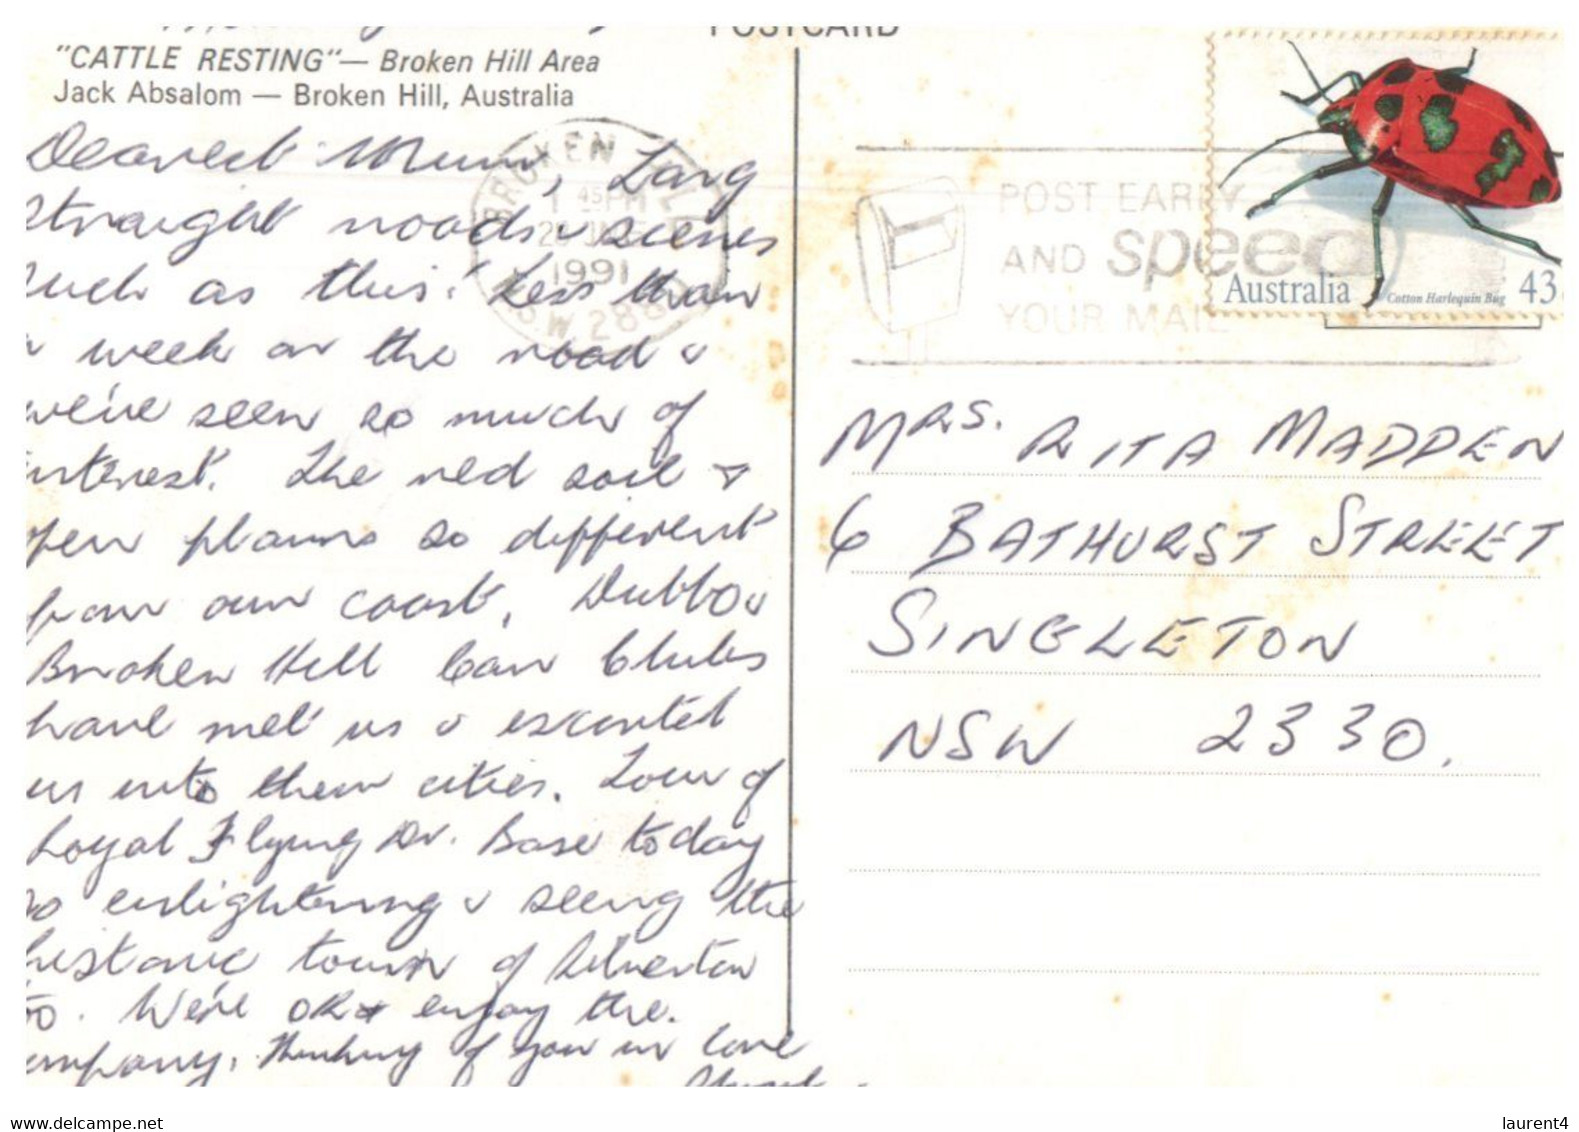 POSTCARD
"CATTLE RESTING" — Broken Hill Area
Jack Absalom — Broken Hill, Australia
Dearest Mum, Long
straight roads & scenes
such as this! Less than
a week on the road &
we've seen so much of
interest. The red soil &
open plains so different
from our coast. Dubbo &
Broken Hill Can Clubs
have met us & escorted
us into their cities. Tour of
Royal Flying Dr. Base today
so enlightening & seeing the
historic town of Silverton
too. We're OK & enjoy the
company. Thinking of you in love
BROKEN HILL
1 45PM
1991
N.S.W. 2880
POST EARLY
AND speed
YOUR MAIL
Australia Cotton Harlequin Bug 43c
MRS. RITA MADDEN
6 BATHURST STREET
SINGLETON
NSW 2330.
laurent4